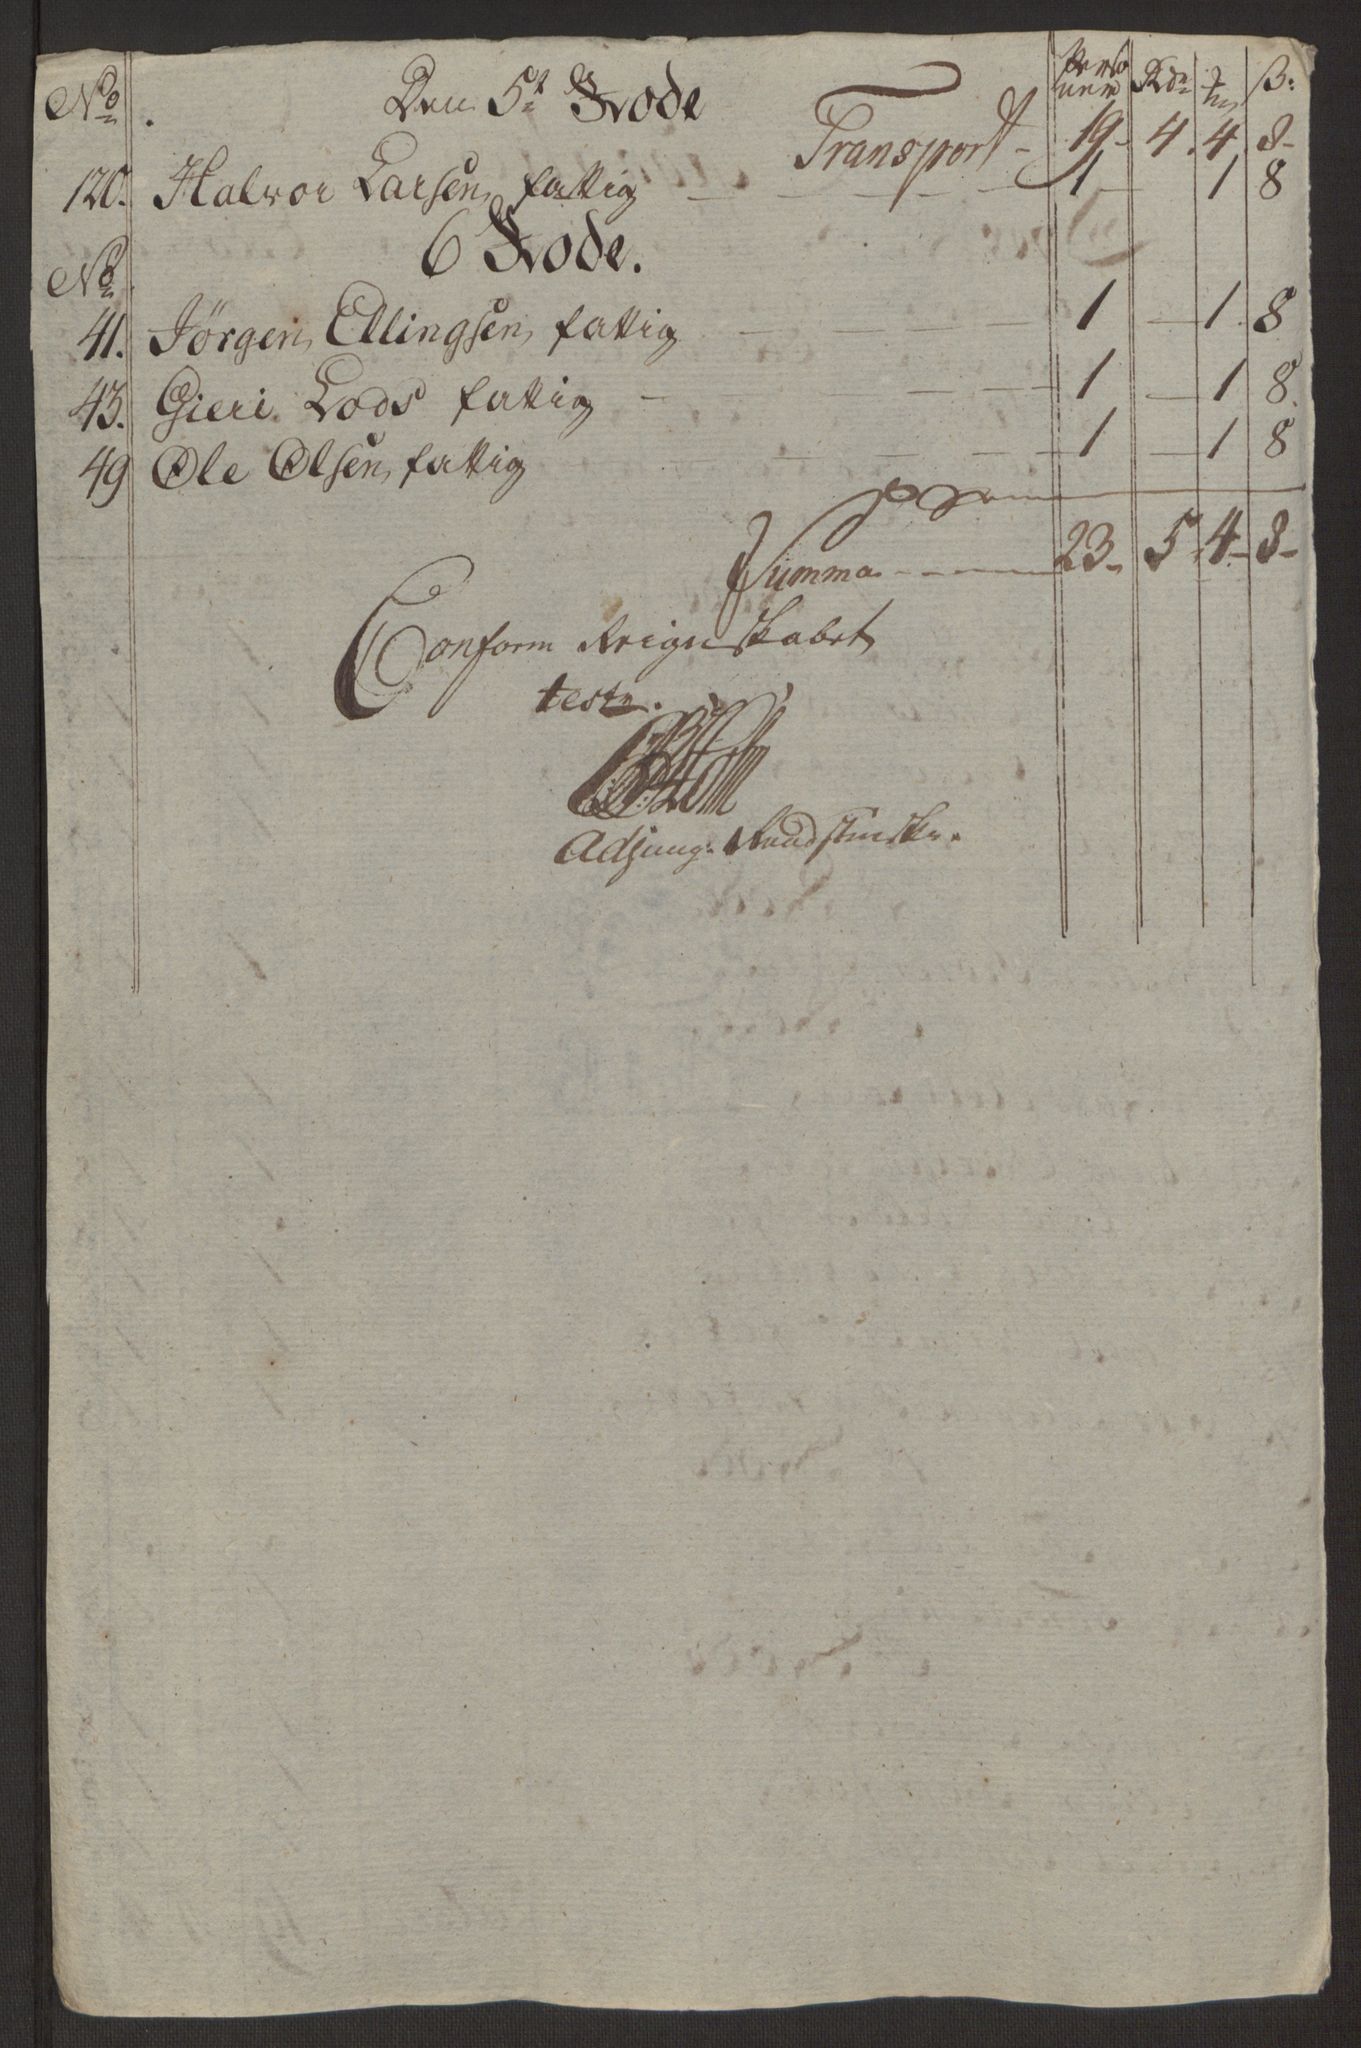 No. Den 5t Rode Perso Rdr ß:
ner
Transport - 19 - 4. 4. 8 -
120. Halvor Larsen fattig 1 - 1 8
6 Rode.
No
41. Jörgen Ellingsen fattig 1 - 1 8
43. Gieri Lods fattig - 1 - 1 8
49 Ole Olsen fattig 1 - 1 8
Summa 23 - 5. 4 - 8 -
Conform Reignskabet
teste.
Adjung: